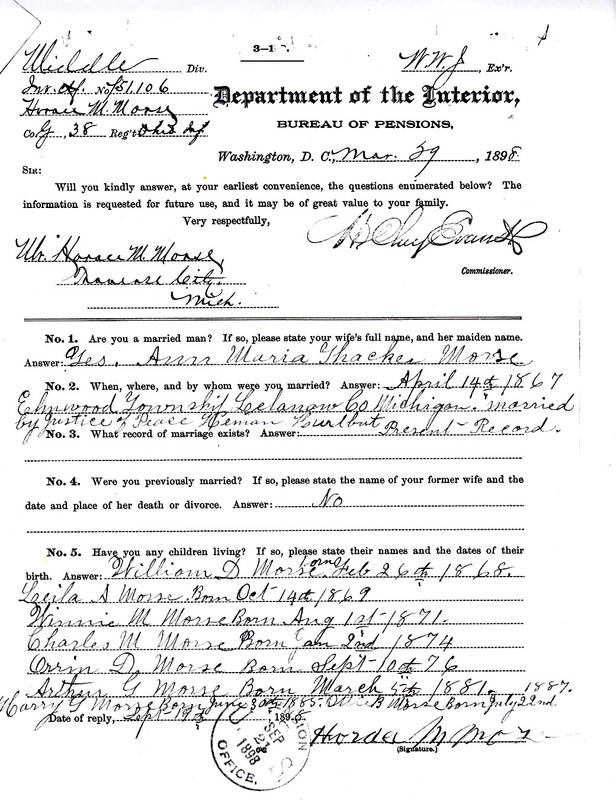 3-1
Middle Div.
W.W.J. Ex'r.
Inv. Ctf. No. 751,106
Horace M. Morse
Co. G, 38 Reg't Ohio Inf
Department of the Interior,
BUREAU OF PENSIONS,
Washington, D. C., Mar. 29, 1898
SIR:
Will you kindly answer, at your earliest convenience, the questions enumerated below? The
information is requested for future use, and it may be of great value to your family.
Very respectfully,
H. Clay Evans
Commissioner.
Mr. Horace M. Morse,
Traverse City.
Mich.
No. 1. Are you a married man? If so, please state your wife's full name, and her maiden name.
Answer: Yes. Ann Maria Thacker Morse
No. 2. When, where, and by whom were you married? Answer: April 14th 1867
Elmwood Township Lelanaw Co Michigan. married
by Justice of Peace Heman Hurlbut
No. 3. What record of marriage exists? Answer: Present Record.
No. 4. Were you previously married? If so, please state the name of your former wife and the
date and place of her death or divorce. Answer: No
No. 5. Have you any children living? If so, please state their names and the dates of their
birth. Answer: William D Morse Borne Feb 26th 1868.
Leila A Morse Born Oct 14th 1869
Winnie M Morse Born Aug 1st 1871.
Charles M Morse Born Jan 2nd 1874
Orrin D. Morse Born Sept 10th 76
Arthur G Morse Born March 5th 1881.
Harry G Morse Born June 30th 1885. B Morse Born July 22nd 1887.
Date of reply, Sept 19th, 1898
PENSION OFFICE
SEP 21 1898
Horace M Morse
(Signature.)